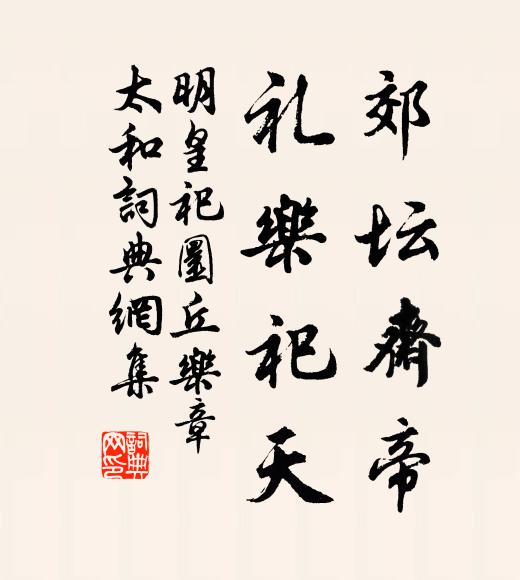 郊坛齋帝
礼樂祀天
明皇祀圜丘樂章
太和詞典網集
詞典网印